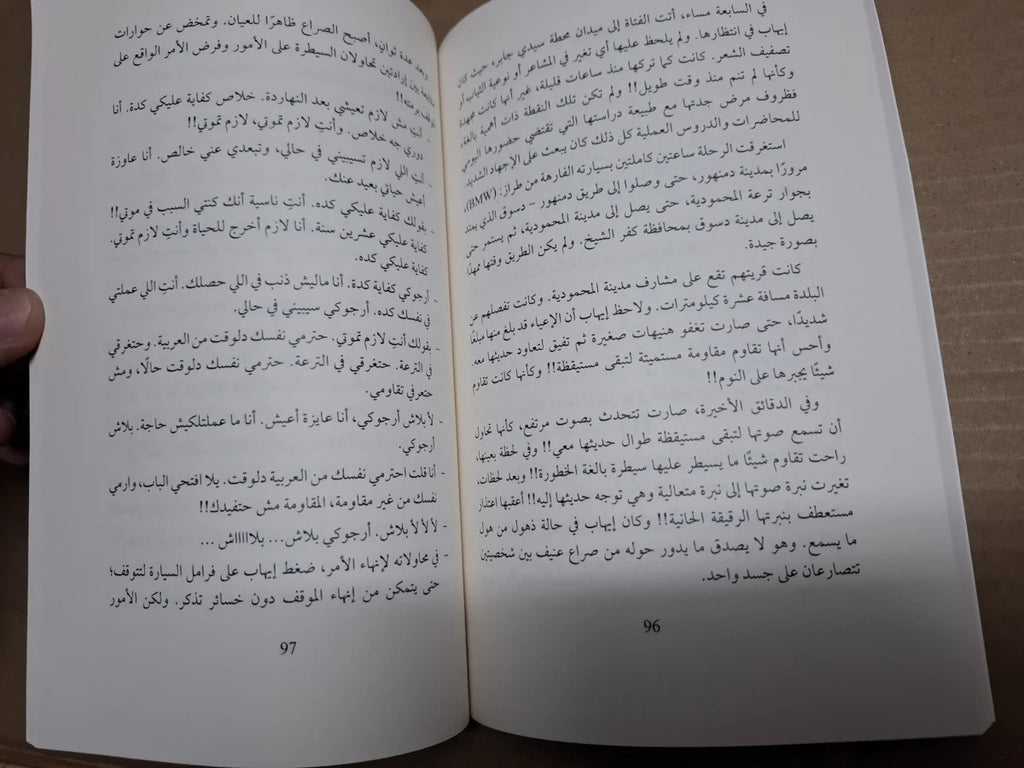 في السابعة مساء، أتت الفتاة إلى ميدان محطة سيدي جابر، حيث كان
إيهاب في انتظارها. ولم يلحظ عليها أي تغير في المشاعر أو نوعية الثياب أو
تصفيف الشعر. كانت كما تركها منذ ساعات قليلة، غير أنها كانت مجهدة
وكأنها لم تنم منذ وقت طويل!! ولم تكن تلك النقطة ذات أهمية بالغة،
فظروف مرض جدتها مع طبيعة دراستها التي تقتضي حضورها اليومي
للمحاضرات والدروس العملية كل ذلك كان يبعث على الإجهاد الشديد.
استغرقت الرحلة ساعتين كاملتين بسيارته الفارهة من طراز: (BMW)،
مرورًا بمدينة دمنهور، حتى وصلوا إلى طريق دمنهور – دسوق الذي يمتد
بجوار ترعة المحمودية، حتى يصل إلى مدينة المحمودية، ثم يستمر حتى
يصل إلى مدينة دسوق بمحافظة كفر الشيخ. ولم يكن الطريق وقتها ممهدًا
بصورة جيدة.
كانت قريتهم تقع على مشارف مدينة المحمودية. وكانت تفصلهم عن
البلدة مسافة عشرة كيلومترات. ولاحظ إيهاب أن الإعياء قد بلغ منها مبلغًا
شديدًا، حتى صارت تغفو هنيهات صغيرة ثم تفيق لتعاود حديثها معه.
وأحس أنها تقاوم مقاومة مستميتة لتبقى مستيقظة!! وكأنها كانت تقاوم
شيئًا يجبرها على النوم!!
وفي الدقائق الأخيرة، صارت تتحدث بصوت مرتفع، كأنها تحاول
أن تسمع صوتها لتبقى مستيقظة طوال حديثها معي!! وفي لحظة بعينها،
راحت تقاوم شيئًا ما يسيطر عليها سيطرة بالغة الخطورة!! وبعد لحظات،
تغيرت نبرة صوتها إلى نبرة متعالية وهي توجه حديثها إليه!! أعقبها اعتذار
مستعطف بنبرتها الرقيقة الحانية!! وكان إيهاب في حالة ذهول من هول
ما يسمع. وهو لا يصدق ما يدور حوله من صراع عنيف بين شخصيتين
تتصارعان على جسد واحد.
96
وبعد عدة ثوانٍ، أصبح الصراع ظاهرًا للعيان. وتمخض عن حوارات
بين إرادتين تحاولان السيطرة على الأمور وفرض الأمر الواقع على
برمته!!
- أنتِ مش لازم تعيشي بعد النهاردة. خلاص كفاية عليكي كدة. أنا
دوري جه خلاص. وأنتِ لازم تموتي، لازم تموتي!!
- أنتِ اللي لازم تسيبيني في حالي، وتبعدي عني خالص. أنا عاوزة
أعيش حياتي بعيد عنك.
- بقولك كفاية عليكي كده. أنتِ ناسية أنك كنتي السبب في موتي!!
كفاية عليكي عشرين سنة. أنا لازم أخرج للحياة وأنتِ لازم تموتي.
كفاية عليكي كده.
- أرجوكي كفاية كدة. أنا ماليش ذنب في اللي حصلك. أنتِ اللي عملتي
في نفسك كده. أرجوكي سيبيني في حالي.
- بقولك أنتِ لازم تموتي. حترمي نفسك دلوقت من العربية. وحتغرقي
في الترعة. حتغرقي في الترعة. حترمي نفسك دلوقت حالًا، ومش
حتعرفي تقاومي.
- لأ بلاش أرجوكي، أنا عايزة أعيش. أنا ما عملتلكيش حاجة. بلاش
أرجوكي.
- أنا قلت احترمي نفسك من العربية دلوقت. يلا افتحي الباب، وارمي
نفسك من غير مقاومة، المقاومة مش حتفيدك!!
- لأ لأ لأ بلاش. أرجوكي بلاش... بلااااااش ...
- في محاولاته لإنهاء الأمر، ضغط إيهاب على فرامل السيارة لتتوقف؛
حتى يتمكن من إنهاء الموقف دون خسائر تذكر. ولكن الأمور
97